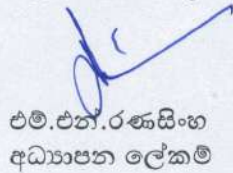 එම්.එන්.රණසිංහ
අධ්‍යාපන ලේකම්